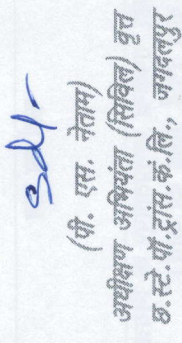 Sd/-
(पी. एस. नेताम)
अधीक्षण अभियंता (सिविल) वृत्त
छ.स्टे.पॉ.ट्रांस.कं.लि., जगदलपुर